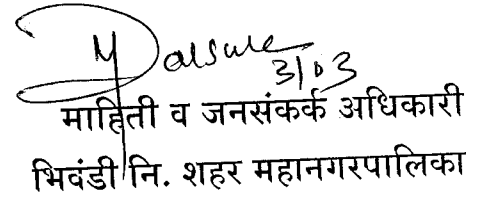 3/03
माहिती व जनसंकर्क अधिकारी
भिवंडी नि. शहर महानगरपालिका